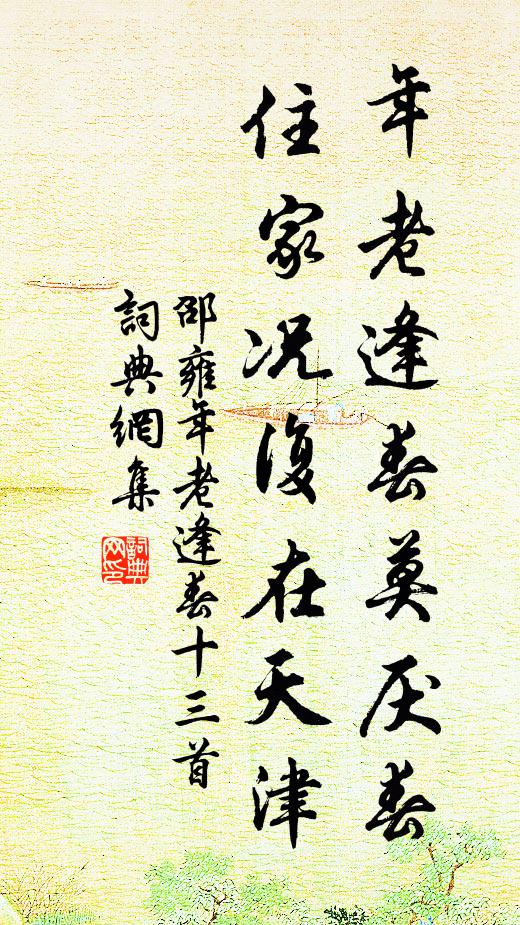 年老逢春莫厌春
住家况復在天津
邵雍年老逢春十三首
詞典網集
詞典网印